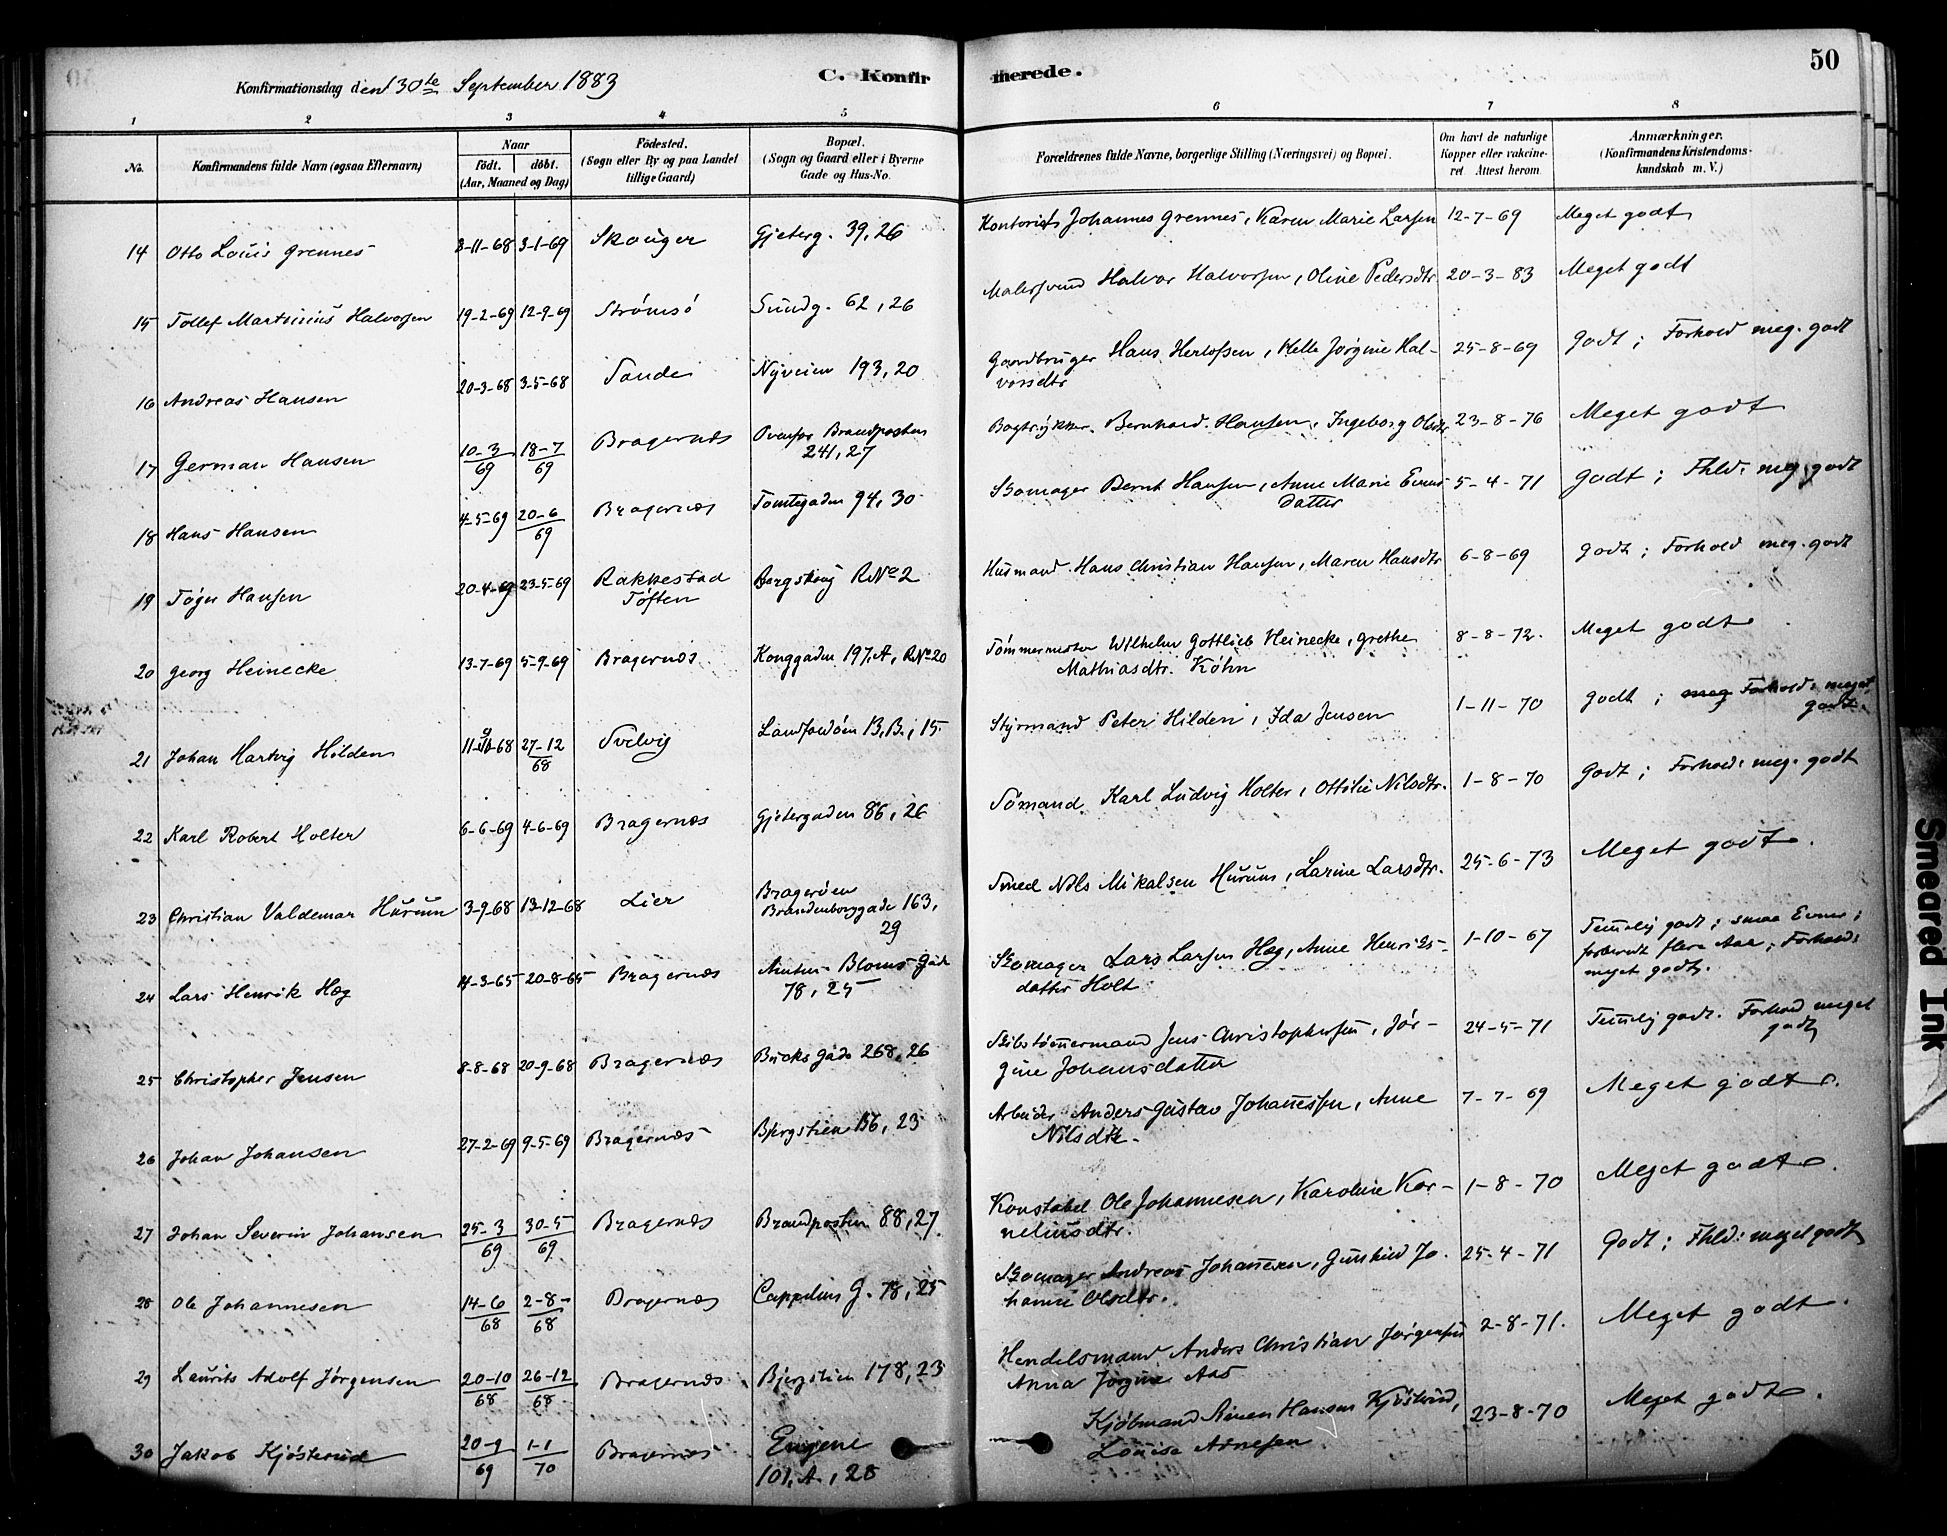 50
Konfirmationsdag den 30te September 1883
C. Konfirmerede.
1 2 3 4 5 6 7 8
No.
Konfirmandens fulde Navn (ogsaa Efternavn)
Naar
født. døbt.
(Aar, Maaned og Dag)
Fødested.
(Sogn eller By og paa Landet
tillige Gaard)
Bopæl.
(Sogn og Gaard eller i Byerne
Gade og Hus-No.
Forældrenes fulde Navne, borgerlige Stilling (Næringsvei) og Bopæl.
Om havt de naturlige
Kopper eller vakcine-
ret. Attest herom.
Anmærkninger.
(Konfirmandens Kristendoms-
kundskab m. V.)
14 Otto Louis Grennes 3-11-68 3-1-69 Skouger Gjeterg. 39, 26 Kontorist Johannes Grennes, Karen Marie Larsen 12-7-69 Meget godt
15 Tollef Martinius Halvorsen 19-2-69 12-9-69 Strømsö Sundg. 62, 26 Malersvend Halvor Halvorsen, Oline Pedersdtr. 20-3-83 Meget godt
16 Andreas Hansen 20-3-68 3-5-68 Sande Nyveien 193, 20 Gaardbruger Hans Herlofsen, Helle Jørgine Hal-
vorsdtr 25-8-69 Godt; Forhold meg. godt
17 German Hansen 10-3/69 18-7/69 Bragernæs Ovenfor Brandposten
241, 27 Bogtrykker Bernhard Hansen, Ingeborg Olsdtr 23-8-76 Meget godt
18 Hans Hansen 4-5-69 20-6/69 Bragernæs Tomtegaden 94, 30 Skomager Bernt Hansen, Anne Marie Evens-
datter 5-4-71 Godt; Fhld: meg. godt
19 Tøger Hansen 20-4-69 23-5-69 Rakkestad
Tøften Bergskoug RNo 2 Husmand Hans Christian Hansen, Maren Hansdtr 6-8-69 Godt; Forhold meg. godt
20 Georg Heinecke 13-7-69 5-9-69 Bragernæs Konggaden 197.A, RNo 20 Tømmermester Wilhelm Gottlieb Heinecke, Grethe
Mathiasdtr. Köhn 8-8-72. Meget godt
21 Johan Hartvig Hilden 11-9-68 27-12/68 Svelvig Landfaldöen 13.B., 15. Styrmand Peter Hilden, Ida Jensen 1-11-70 Godt; meg Forhold: meget
godt.
22 Karl Robert Holter 6-6-69 4-6-69 Bragernæs Gjetergaden 86, 26 Sömand Karl Ludvig Holter, Ottilie Nilsdtr. 1-8-70 Godt; Forhold: meg. godt
23 Christian Valdemar Hurum 3-9-68 13-12-68 Lier Bragerøen
Brandenborggade 163,
29 Smed Nils Mikalsen Hurum, Larine Larsdtr. 25-6-73 Meget godt.
24 Lars Henrik Hæg 14-3-65 20-8-65 Bragernæs Amtm. Bloms Gade
78, 25 Skomager Lars Larsen Hæg, Anne Henriks-
datter Holt 1-10-67 Temelig godt; smaa Evner;
forberedt flere Aar; Forhold:
meget godt.
25 Christopher Jensen 8-8-68 20-9-68 Bragernæs Bucks Gade 268, 26 Skibstømmermand Jens Christophersen, Jör-
gine Johansdatter 24-5-71 Temelig godt. Forhold meget
godt
26 Johan Johansen 27-2-69 9-5-69 Bragernæs Bjergstien 156, 23 Arbeider Anders Gustav Johannessen, Anne
Nilsdtr. 7-7-69 Meget godt.
27 Johan Severin Johansen 25-3/69 30-5/69 Bragernæs Brandposten 88, 27 Konstabel Ole Johannesen, Karoline Kor-
neliusdtr. 1-8-70 Meget godt.
28 Ole Johannesen 14-6/68 2-8-/68 Bragernæs Cappelens G. 78, 25 Skomager Andreas Johannesen, Gunhild Jo-
hanne Olsdtr. 25-4-71 Godt; Fhld: meget godt
29 Laurits Adolf Jørgensen 20-10/68 26-12/68 Bragernæs Bjergstien 178, 23 Handelsmand Anders Christian Jørgensen
Anna Jørgine Aas 2-8-71. Meget godt.
30 Jakob Kjøsterud 20-9/69 1-1/70 Bragernæs Engene
101.A., 28 Kjøbmand Hansen Kjøsterud,
Louise Arnesen 23-8-70 Meget godt.
Smeared Ink